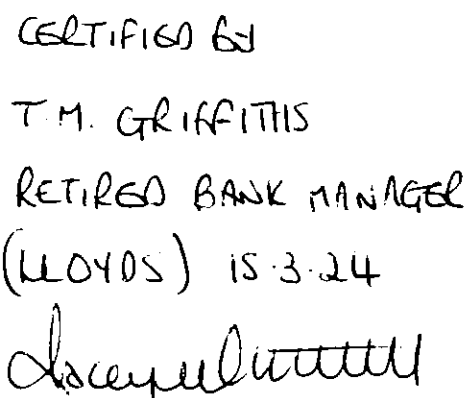 CERTIFIED By
T.M. GRIFFITHS
RETIRED BANK MANAGER
(LLOYDS) 15.3.24